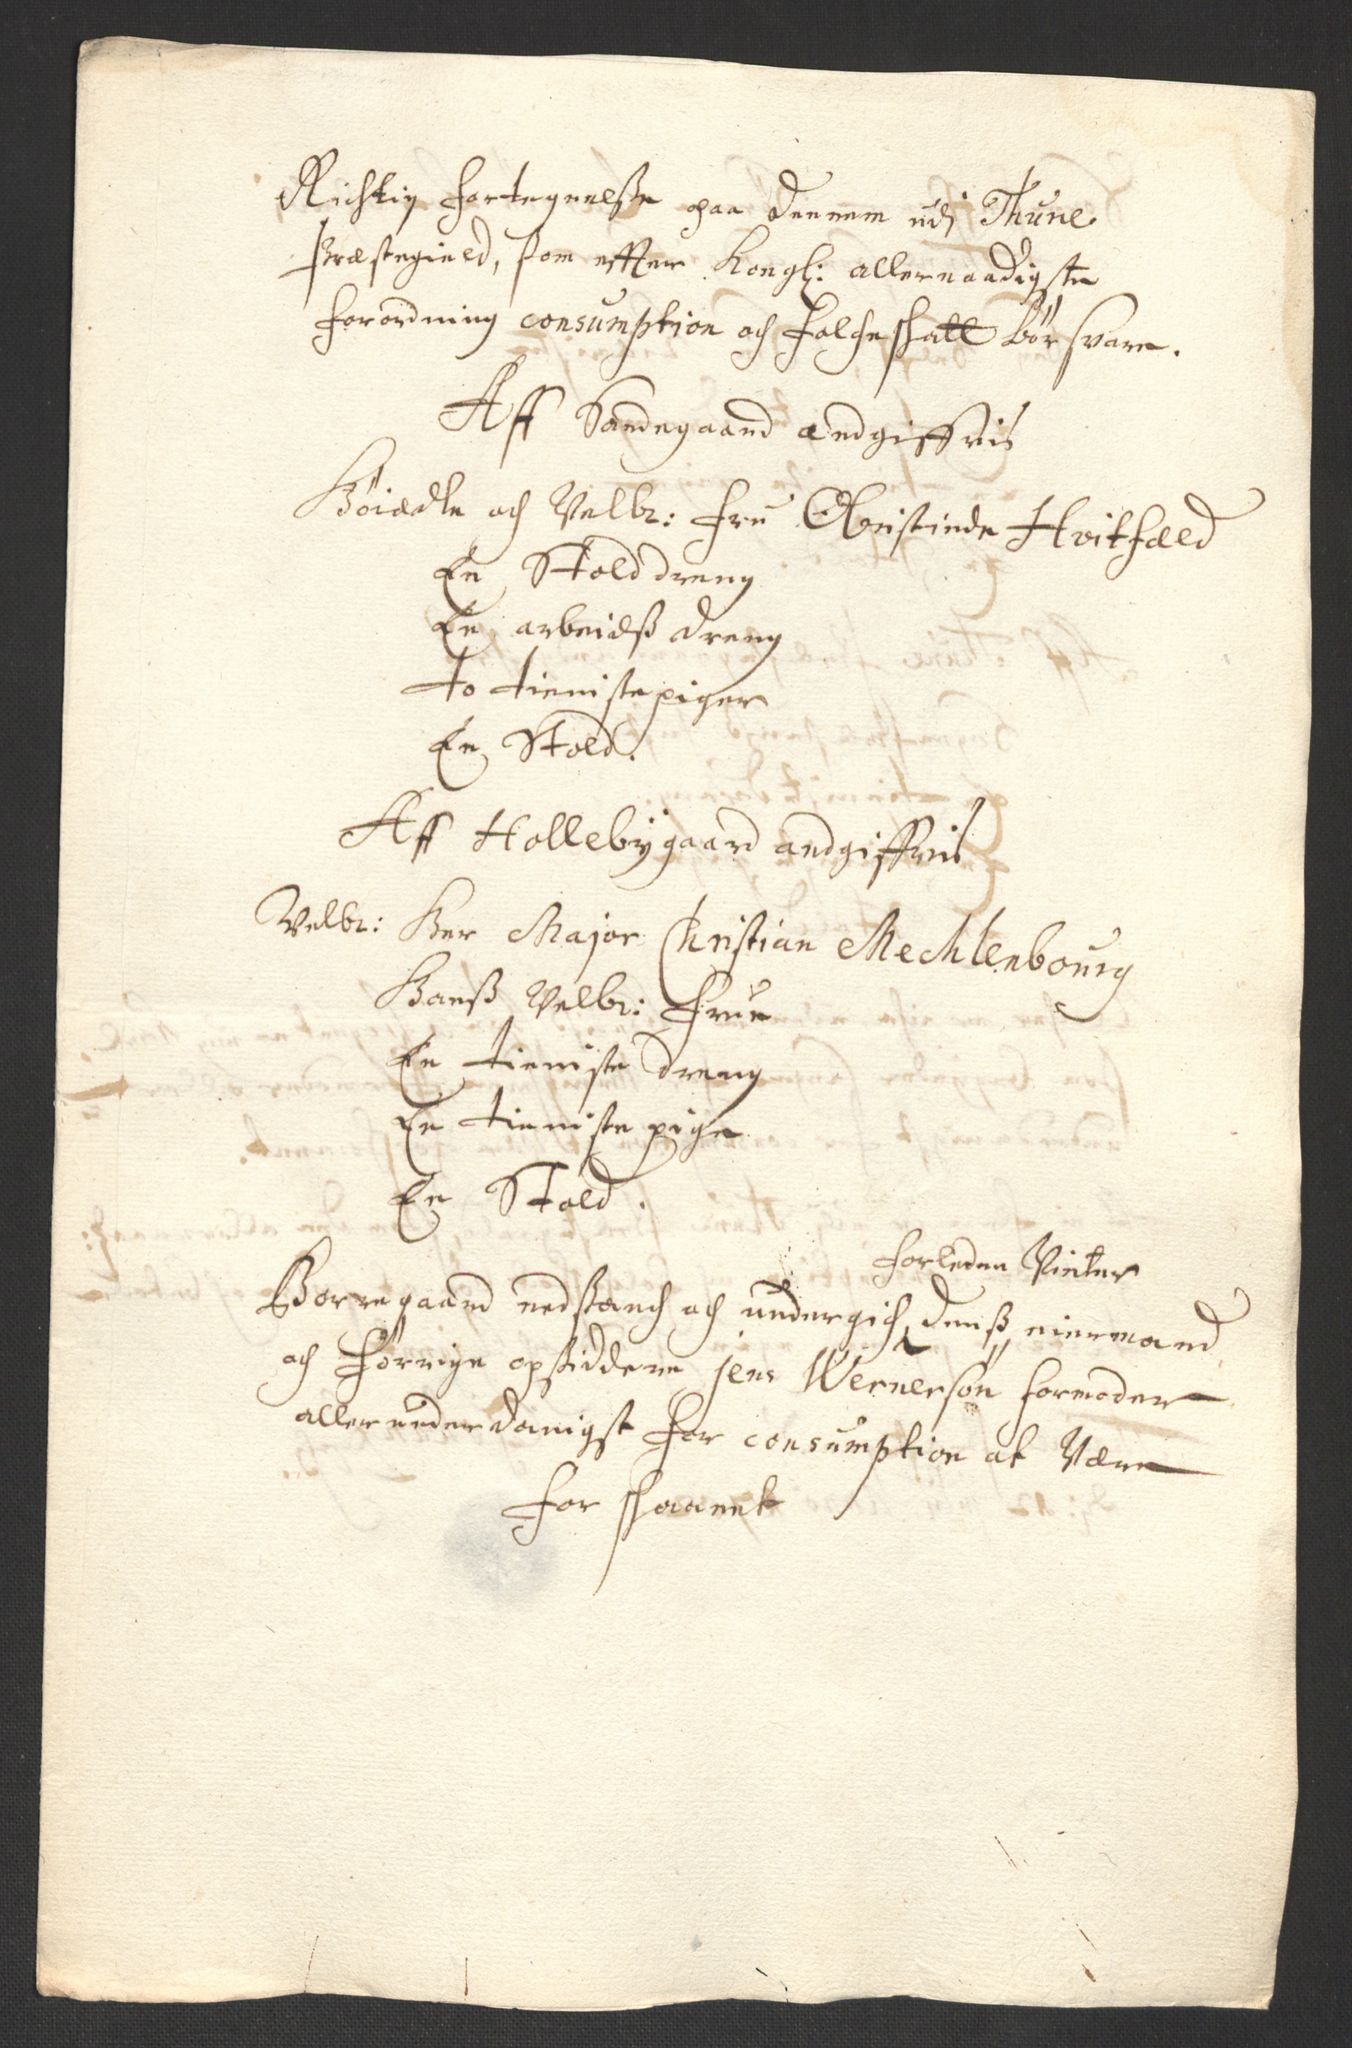 Richtig fortegnelsse paa dennem udj Thune
Præstegield, som effter Kongl: allernaadigste
forordning consumption och folcheskatt bør svare.
Aff Sandegaard andgiffvis
Høiædle och Velb: frue Christinde Hvitfæld
En Stolddreng
En arbeidß dreng
to tienistepiger
En Stold.
Aff Hollebygaard andgiffvis
Velb: Her Major Christian Mechlenbourg
Hanß Velb: frue
En tieniste dreng
En tieniste pige
En Stold.
forleden Vinter
Borregaard nedsanch och undergich, denß eiermand
och forrige opsiddere jens Wernersøn formoder
allerunderdanigst for consumption at Være
for skaanet